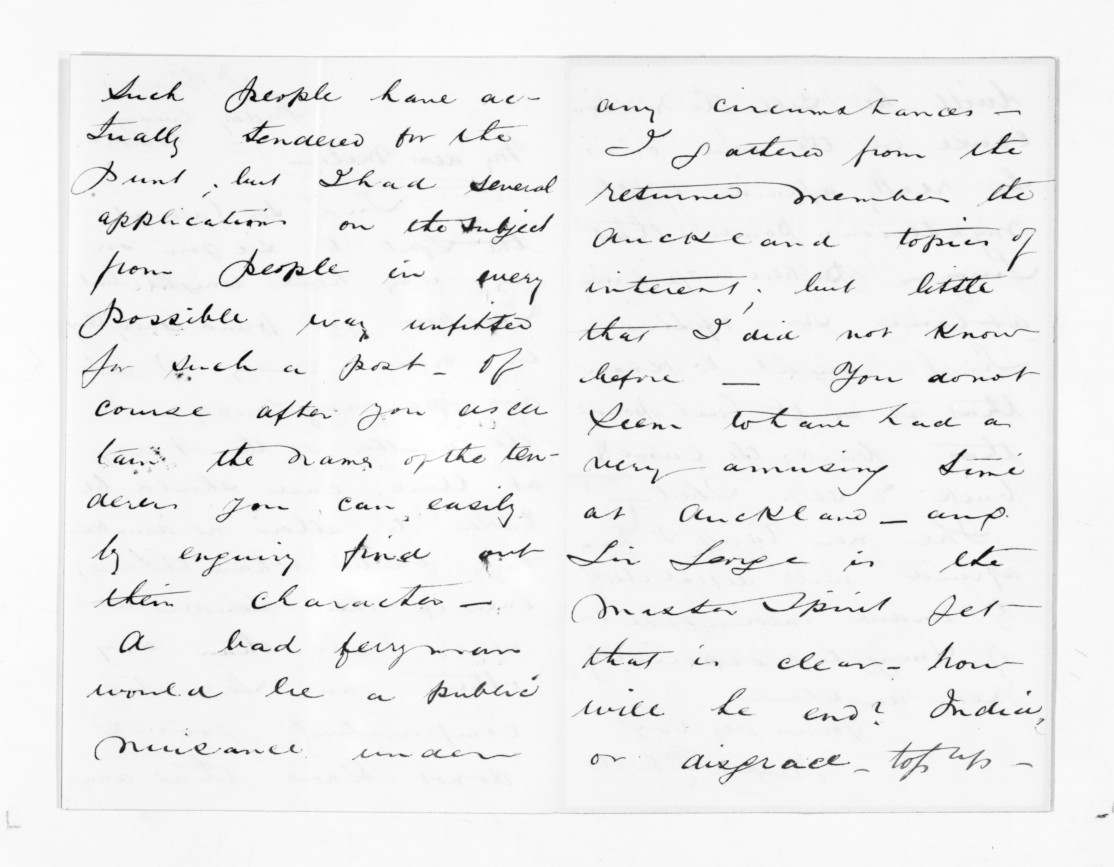 Such people have ac-
tually tendered for the
Punt, but I had several
applications on the subject
from people in every
possible way unfitted
for such a post - Of
course after you ascer
tain the names of the ten-
derers you can easily
by enquiry find out
their character -
A bad ferryman
would be a public
nuisance under
any circumstances -
I gathered from the
returned members the
Auckland topics of
interest; but little
that I did not know
before - You do not
seem to have had a
very amusing time
at Auckland - and
Sir George is the
Master Spirit yet
that is clear - how
will he end? India,
or disgrace - top up -